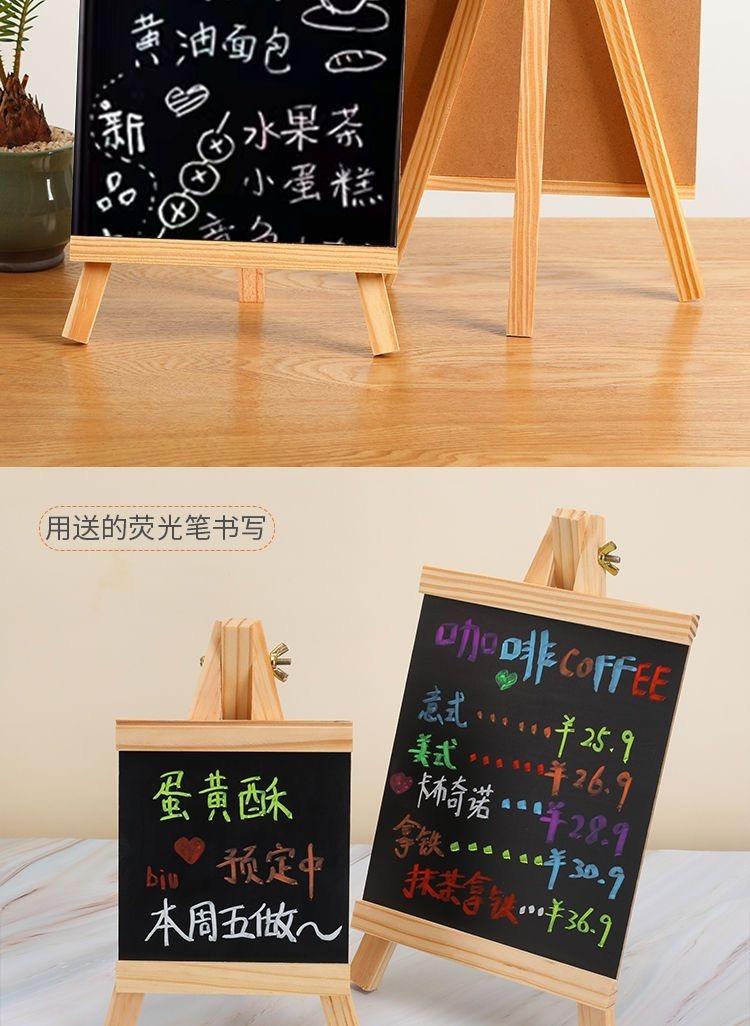 黄油面包
新
水果茶
小蛋糕
用送的荧光笔书写
咖啡COFFEE
意式......¥25.9
美式......¥26.9
卡布奇诺...¥28.9
拿铁......¥30.9
抹茶拿铁...¥36.9
蛋黄酥
biu 预定中
本周五做～